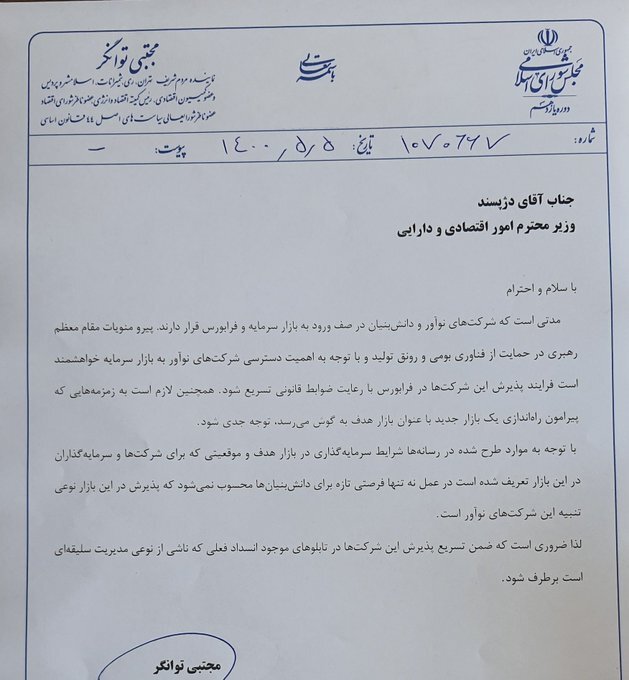 جمهوری اسلامی ایران
مجلس شورای اسلامی
دوره یازدهم
باسمه تعالی
مجتبی توانگر
نماینده مردم شریف تهران، ری، شمیرانات، اسلامشهر و پردیس
و عضو کمیسیون اقتصادی، رئیس کمیته اقتصاد
عضو ناظر شورای عالی سیاست‌های اصل ۴۴ قانون اساسی
شماره: ۱۰۷۰۶۶۷ تاریخ: ۱۴۰۰/۵/۵ پیوست: –
جناب آقای دژپسند
وزیر محترم امور اقتصادی و دارایی
با سلام و احترام
مدتی است که شرکت‌های نوآور و دانش‌بنیان در صف ورود به بازار سرمایه و فرابورس قرار دارند. پیرو منویات مقام معظم
رهبری در حمایت از فناوری بومی و رونق تولید و با توجه به اهمیت دسترسی شرکت‌های نوآور به بازار سرمایه خواهشمند
است فرایند پذیرش این شرکت‌ها در فرابورس با رعایت ضوابط قانونی تسریع شود. همچنین لازم است به زمزمه‌هایی که
پیرامون راه‌اندازی یک بازار جدید با عنوان بازار هدف به گوش می‌رسد، توجه جدی شود.
با توجه به موارد طرح شده در رسانه‌ها شرایط سرمایه‌گذاری در بازار هدف و موقعیتی که برای شرکت‌ها و سرمایه‌گذاران
در این بازار تعریف شده است در عمل نه تنها فرصتی تازه برای دانش‌بنیان‌ها محسوب نمی‌شود که پذیرش در این بازار نوعی
تنبیه این شرکت‌های نوآور است.
لذا ضروری است که ضمن تسریع پذیرش این شرکت‌ها در تابلوهای موجود انسداد فعلی که ناشی از نوعی مدیریت سلیقه‌ای
است برطرف شود.
مجتبی توانگر